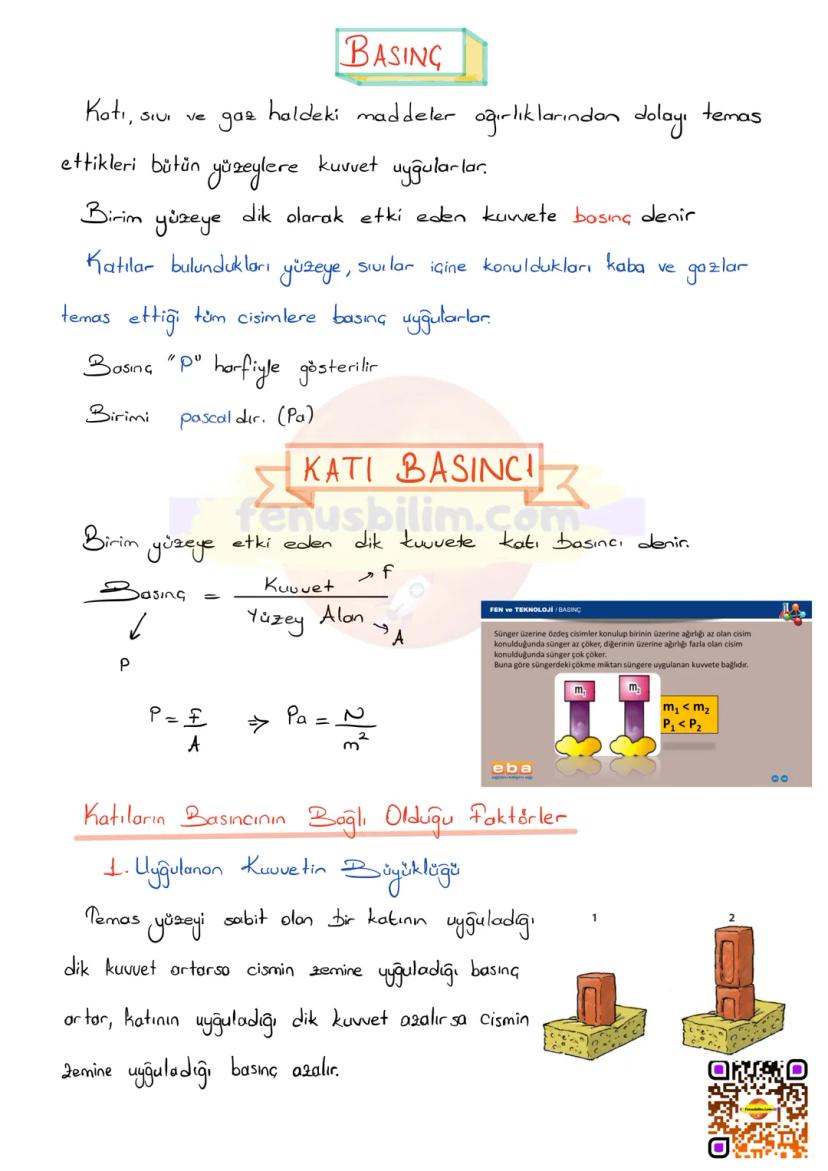 BASINÇ
Katı, sıvı ve gaz haldeki maddeler ağırlıklarından dolayı temas
ettikleri bütün yüzeylere kuvvet uygularlar.
Birim yüzeye dik olarak etki eden kuvvete basınç denir
Katılar bulundukları yüzeye, sıvılar içine konuldukları kaba ve gazlar
temas ettiği tüm cisimlere basınç uygularlar.
Basınç "P" harfiyle gösterilir
Birimi pascaldır. (Pa)
KATI BASINCI
fenusbilim.com
Birim yüzeye etki eden dik kuvvete katı basıncı denir.
Basınç = Kuvvet → F
Yüzey Alan → A
P
P = F/A ⇒ Pa = N/m²
FEN ve TEKNOLOJİ / BASINÇ
Sünger üzerine özdeş cisimler konulup birinin üzerine ağırlığı az olan cisim
konulduğunda sünger az çöker, diğerinin üzerine ağırlığı fazla olan cisim
konulduğunda sünger çok çöker.
Buna göre süngerdeki çökme miktarı süngere uygulanan kuvvete bağlıdır.
m₁ m₂
m₁ < m₂
P₁ < P₂
eba
Katıların Basıncının Bağlı Olduğu Faktörler
1. Uygulanan Kuvvetin Büyüklüğü
Temas yüzeyi sabit olan bir katının uyguladığı
dik kuvvet artarsa cismin zemine uyguladığı basınç
artar, katının uyguladığı dik kuvvet azalırsa cismin
zemine uyguladığı basınç azalır.
1 2
Fenusbilim.com